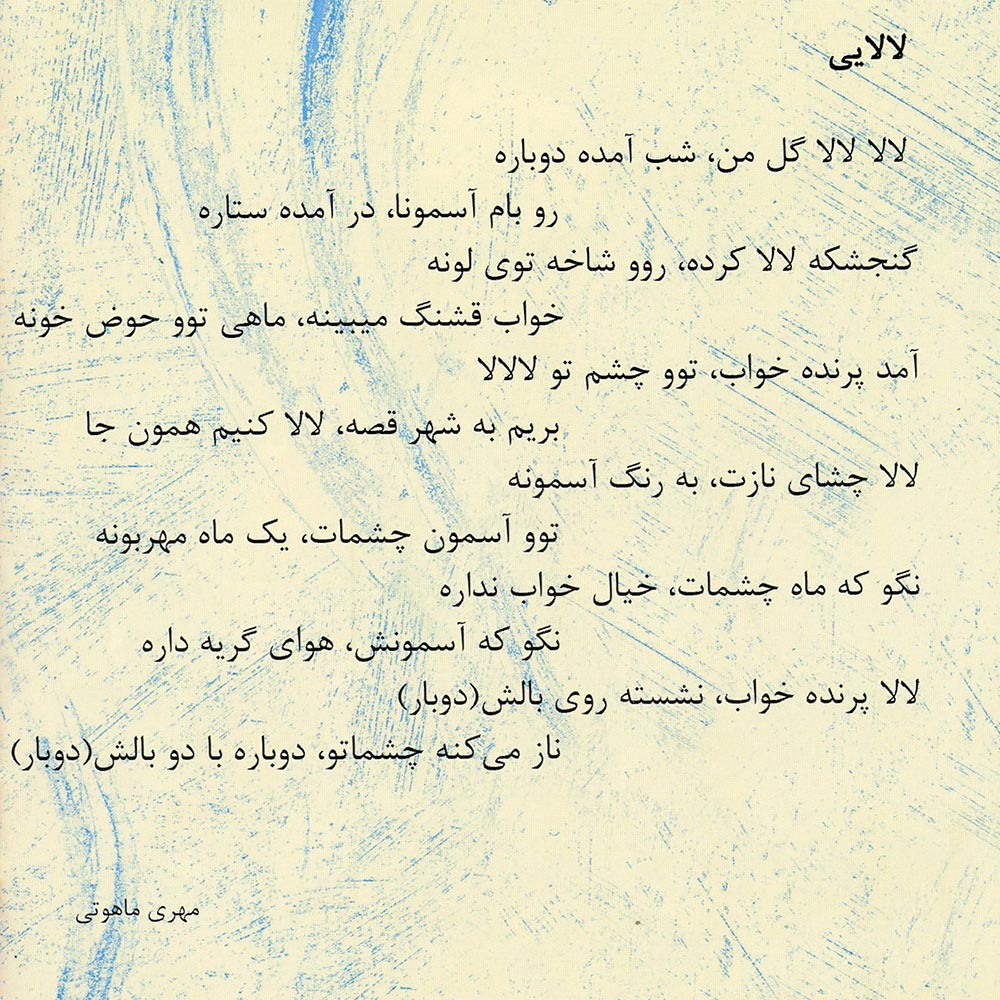 لالایی
لالا لالا گل من، شب آمده دوباره
رو بام آسمونا، در آمده ستاره
گنجشکه لالا کرده، روو شاخه توی لونه
خواب قشنگ میبینه، ماهی توو حوض خونه
آمد پرنده خواب، توو چشم تو لالالا
بریم به شهر قصه، لالا کنیم همون جا
لالا چشای نازت، به رنگ آسمونه
توو آسمون چشمات، یک ماه مهربونه
نگو که ماه چشمات، خیال خواب نداره
نگو که آسمونش، هوای گریه داره
لالا پرنده خواب، نشسته روی بالش(دوبار)
ناز می‌کنه چشماتو، دوباره با دو بالش(دوبار)
مهری ماهوتی